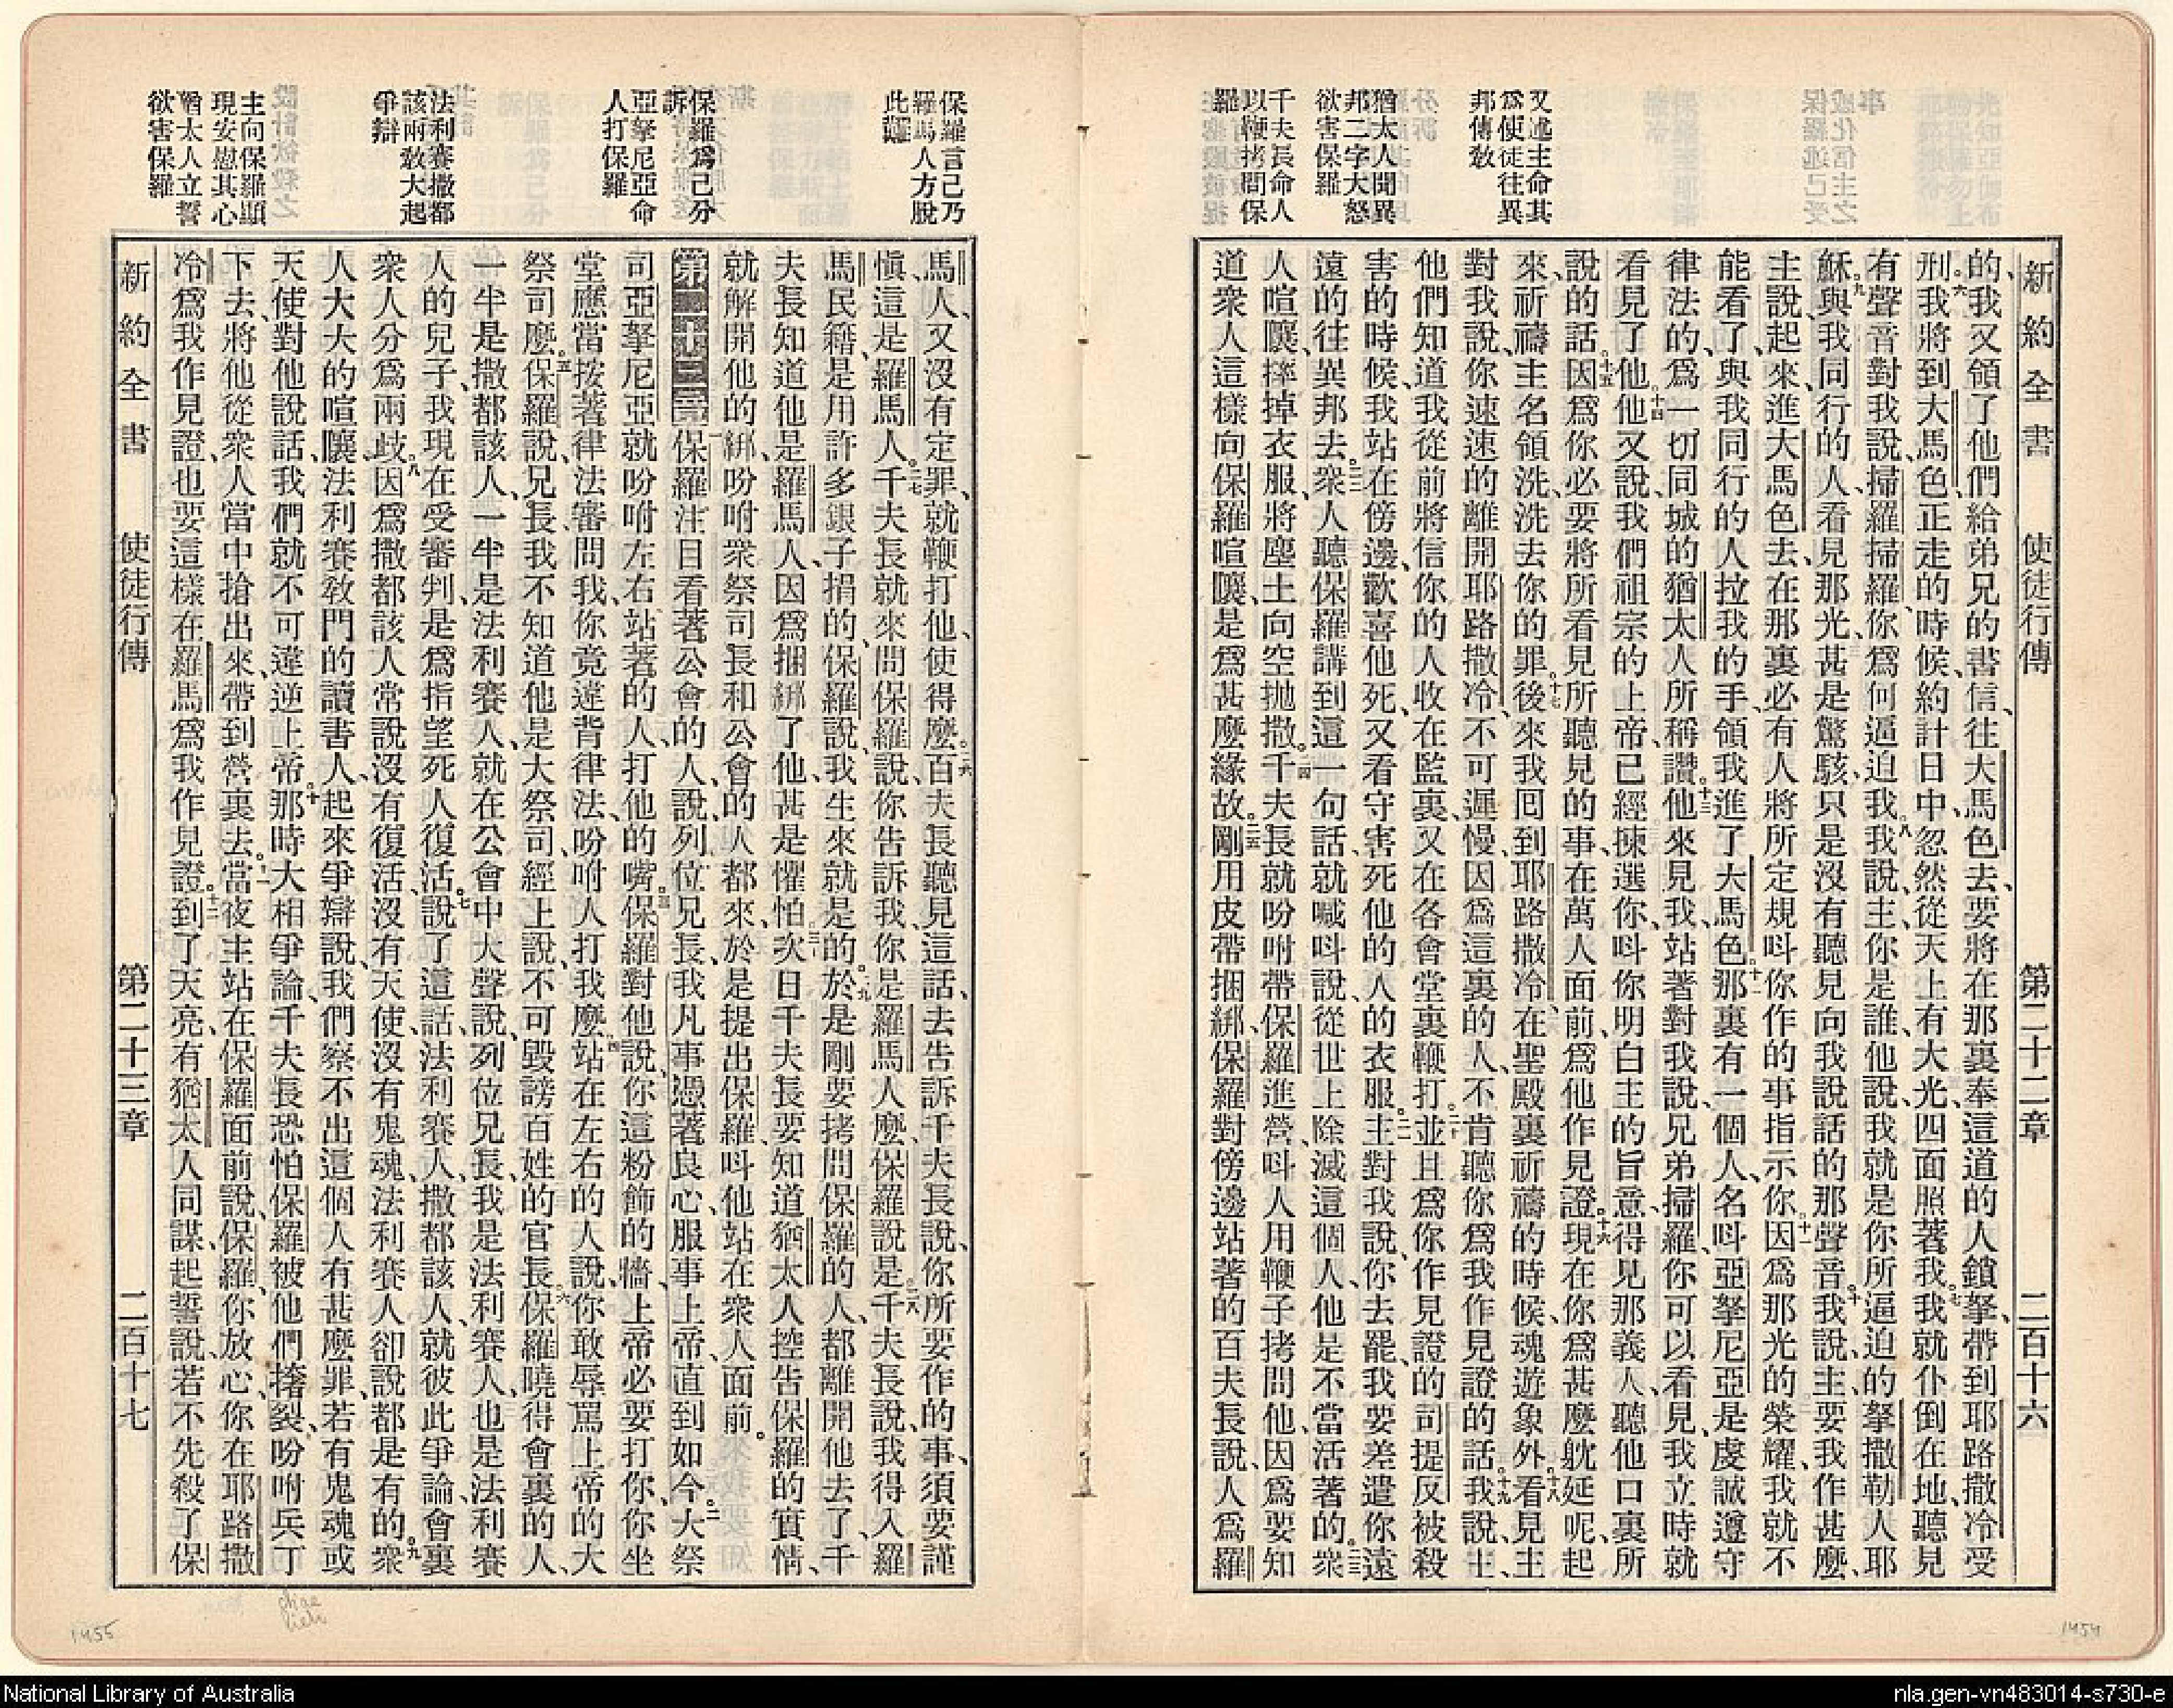 新約全書 使徒行傳 第二十二章 二百十六
又述主命其
爲使徒往異
邦傳敎
猶太人聞異
邦二字大怒
欲害保羅
千夫長命人
以鞭拷問保
羅
的、我又領了他們給弟兄的書信、往大馬色去、要將在那裏奉這道的人鎖拏、帶到耶路撒冷受
刑。六我將到大馬色、正走的時候、約計日中、忽然從天上有大光、四面照著我。七我就仆倒在地、聽見
有聲音對我說、掃羅掃羅、你爲何逼迫我。八我說、主、你是誰、他說、我就是你所逼迫的拏撒勒人耶
穌。九與我同行的人、看見那光、甚是驚駭、只是沒有聽見向我說話的那聲音。十我說、主、要我作甚麽、
主說、起來、進大馬色去、在那裏必有人將所定規呌你作的事指示你。十一因爲那光的榮耀、我就不
能看了、與我同行的人、拉我的手、領我進了大馬色。十二那裏有一個人、名呌亞拏尼亞、是虔誠遵守
律法的、爲一切同城的猶太人所稱讚。十三他來見我、站著對我說、兄弟掃羅、你可以看見、我立時就
看見了他。十四他又說、我們祖宗的上帝、已經揀選你、呌你明白主的旨意、得見那義人、聽他口裏所
說的話。十五因爲你必要將所看見所聽見的事、在萬人面前、爲他作見證。十六現在你爲甚麽躭延呢、起
來、祈禱主名、領洗、洗去你的罪。十七後來我囘到耶路撒冷、在聖殿裏祈禱的時候、魂遊象外。十八看見主
對我說、你速速的離開耶路撒冷、不可遲慢、因爲這裏的人、不肯聽你爲我作見證的話。十九我說、主、
他們知道我從前將信你的人收在監裏、又在各會堂裏鞭打。二十並且爲你作見證的司提反被殺
害的時候、我站在傍邊、歡喜他死、又看守害死他的人的衣服。二一主對我說、你去罷、我要差遣你遠
遠的往異邦去。二二衆人聽保羅講到這一句話、就喊呌說、從世上除滅這個人、他是不當活著的。二三衆
人喧嚷、摔掉衣服、將塵土向空抛撒。二四千夫長就吩咐帶保羅進營、呌人用鞭子拷問他、因爲要知
道衆人這樣向保羅喧嚷、是爲甚麽緣故。二五剛用皮帶捆綁、保羅對傍邊站著的百夫長說、人爲羅
保羅言己乃
羅馬人方脫
此難
保羅爲己分
訴
亞拏尼亞命
人打保羅
法利賽撒都
該兩敎大起
爭辯
主向保羅顯
現安慰其心
猶太人立誓
欲害保羅
馬人、又沒有定罪、就鞭打他、使得麽。二六百夫長聽見這話、去告訴千夫長說、你所要作的事、須要謹
愼、這是羅馬人。二七千夫長就來問保羅說、你告訴我、你是羅馬人麽、保羅說、是。二八千夫長說、我得入羅
馬民籍、是用許多銀子捐的、保羅說、我生來就是的。二九於是剛要拷問保羅的人、都離開他去了、千
夫長知道他是羅馬人、因爲捆綁了他、甚是懼怕。三十次日千夫長要知道猶太人控告保羅的實情、
就解開他的綁、吩咐衆祭司長和公會的人都來、於是提出保羅、呌他站在衆人面前。
第二十三章 一保羅注目看著公會的人、說、列位兄長、我凡事憑著良心、服事上帝、直到如今。二大祭
司亞拏尼亞、就吩咐左右站著的人、打他的嘴。三保羅對他說、你這粉飾的牆、上帝必要打你、你坐
堂應當按著律法審問我、你竟違背律法、吩咐人打我麽。四站在左右的人說、你敢辱罵上帝的大
祭司麽。五保羅說、兄長、我不知道他是大祭司、經上說、不可毀謗百姓的官長。六保羅曉得會裏的人、
一半是撒都該人、一半是法利賽人、就在公會中大聲說、列位兄長、我是法利賽人、也是法利賽
人的兒子、我現在受審判、是爲指望死人復活。七說了這話、法利賽人、撒都該人、就彼此爭論、會裏
衆人分爲兩歧。八因爲撒都該人常說沒有復活、沒有天使、沒有鬼魂、法利賽人卻說都是有的。九衆
人大大的喧嚷、法利賽敎門的讀書人、起來爭辯說、我們察不出這個人有甚麽罪、若有鬼魂或
天使對他說話、我們就不可違逆上帝。十那時大相爭論、千夫長恐怕保羅被他們撦裂、吩咐兵丁
下去、將他從衆人當中搶出來、帶到營裏去。十一當夜主站在保羅面前說、保羅、你放心、你在耶路撒
冷爲我作見證、也要這樣在羅馬爲我作見證。十二到了天亮、有猶太人同謀、起誓說、若不先殺了保
新約全書 使徒行傳 第二十三章 二百十七
1455
1454
National Library of Australia
nla.gen-vn483014-s730-e